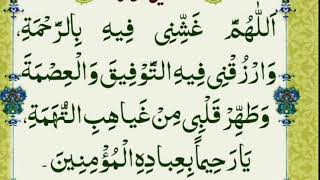 اَللّٰهُمَّ غَشِّنِی فِیهِ بِالرَّحْمَةِ،
وَارْزُقْنِی فِیهِ التَّوْفِیقَ وَالْعِصْمَةَ
وَطَهِّرْ قَلْبِی مِنْ غَیَاهِبِ التُّهَمَةِ،
یَا رَحِیماً بِعِبَادِهِ الْمُؤْمِنِینَ۔